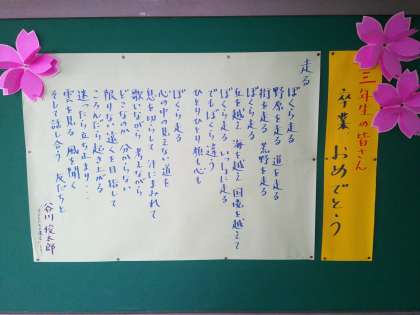 三年生の皆さん
卒業 おめでとう
走る
ぼくら走る
野原を走る 道を走る
街を走る 荒野を走る
丘を越え 海を越え 国境を越えて
ぼくら走る いっしょに走る
でもぼくら違う
ひとりひとり 顔も心も
ぼくら走る
心の中の見えない道を
息を切らして 汗にまみれて
歌いながら 考えながら
どこなのか 分からない
限りない遠くを目指して
ころんだら起き上がる
迷ったら立ち止まり・・・
雲を見る 風を聞く
そして話し合う 友だちと
谷川俊太郎